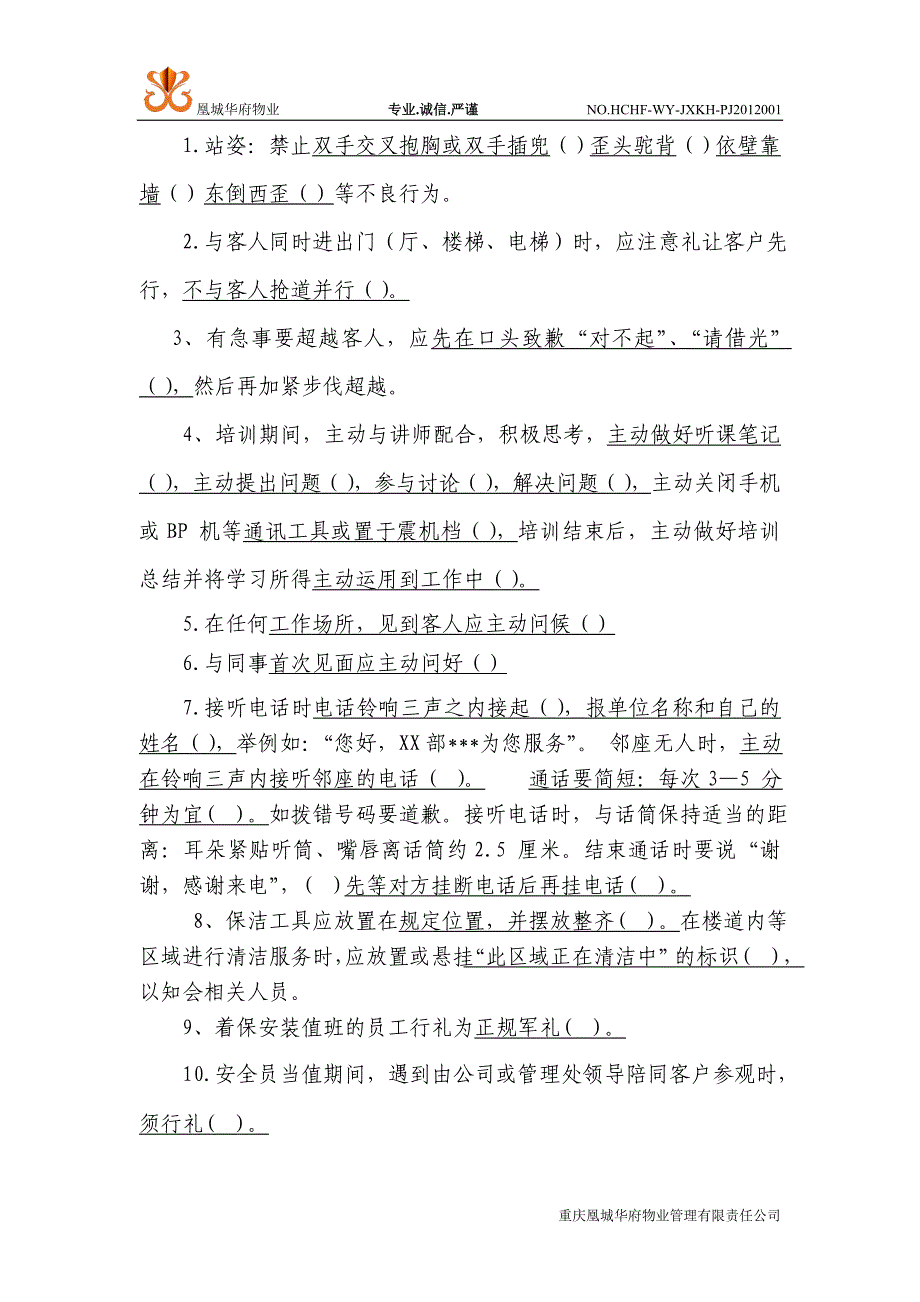 凰城华府物业 专业.诚信.严谨 NO.HCHF-WY-JXKH-PJ2012001
1.站姿：禁止双手交叉抱胸或双手插兜（）歪头驼背（）依壁靠
墙（）东倒西歪（）等不良行为。
2.与客人同时进出门（厅、楼梯、电梯）时，应注意礼让客户先
行，不与客人抢道并行（）。
3、有急事要超越客人，应先在口头致歉“对不起”、“请借光”
（），然后再加紧步伐超越。
4、培训期间，主动与讲师配合，积极思考，主动做好听课笔记
（），主动提出问题（），参与讨论（），解决问题（），主动关闭手机
或BP 机等通讯工具或置于震机档（），培训结束后，主动做好培训
总结并将学习所得主动运用到工作中（）。
5.在任何工作场所，见到客人应主动问候（）
6.与同事首次见面应主动问好（）
7.接听电话时电话铃响三声之内接起（），报单位名称和自己的
姓名（），举例如：“您好，XX部***为您服务”。 邻座无人时，主动
在铃响三声内接听邻座的电话（ ）。 通话要简短：每次3—5 分
钟为宜（ ）。如拨错号码要道歉。接听电话时，与话筒保持适当的距
离：耳朵紧贴听筒、嘴唇离话筒约2.5 厘米。结束通话时要说“谢
谢，感谢来电”，（ ）先等对方挂断电话后再挂电话（ ）。
8、保洁工具应放置在规定位置，并摆放整齐（ ）。在楼道内等
区域进行清洁服务时，应放置或悬挂“此区域正在清洁中”的标识（ ），
以知会相关人员。
9、着保安装值班的员工行礼为正规军礼（ ）。
10.安全员当值期间，遇到由公司或管理处领导陪同客户参观时，
须行礼（ ）。
重庆凰城华府物业管理有限责任公司